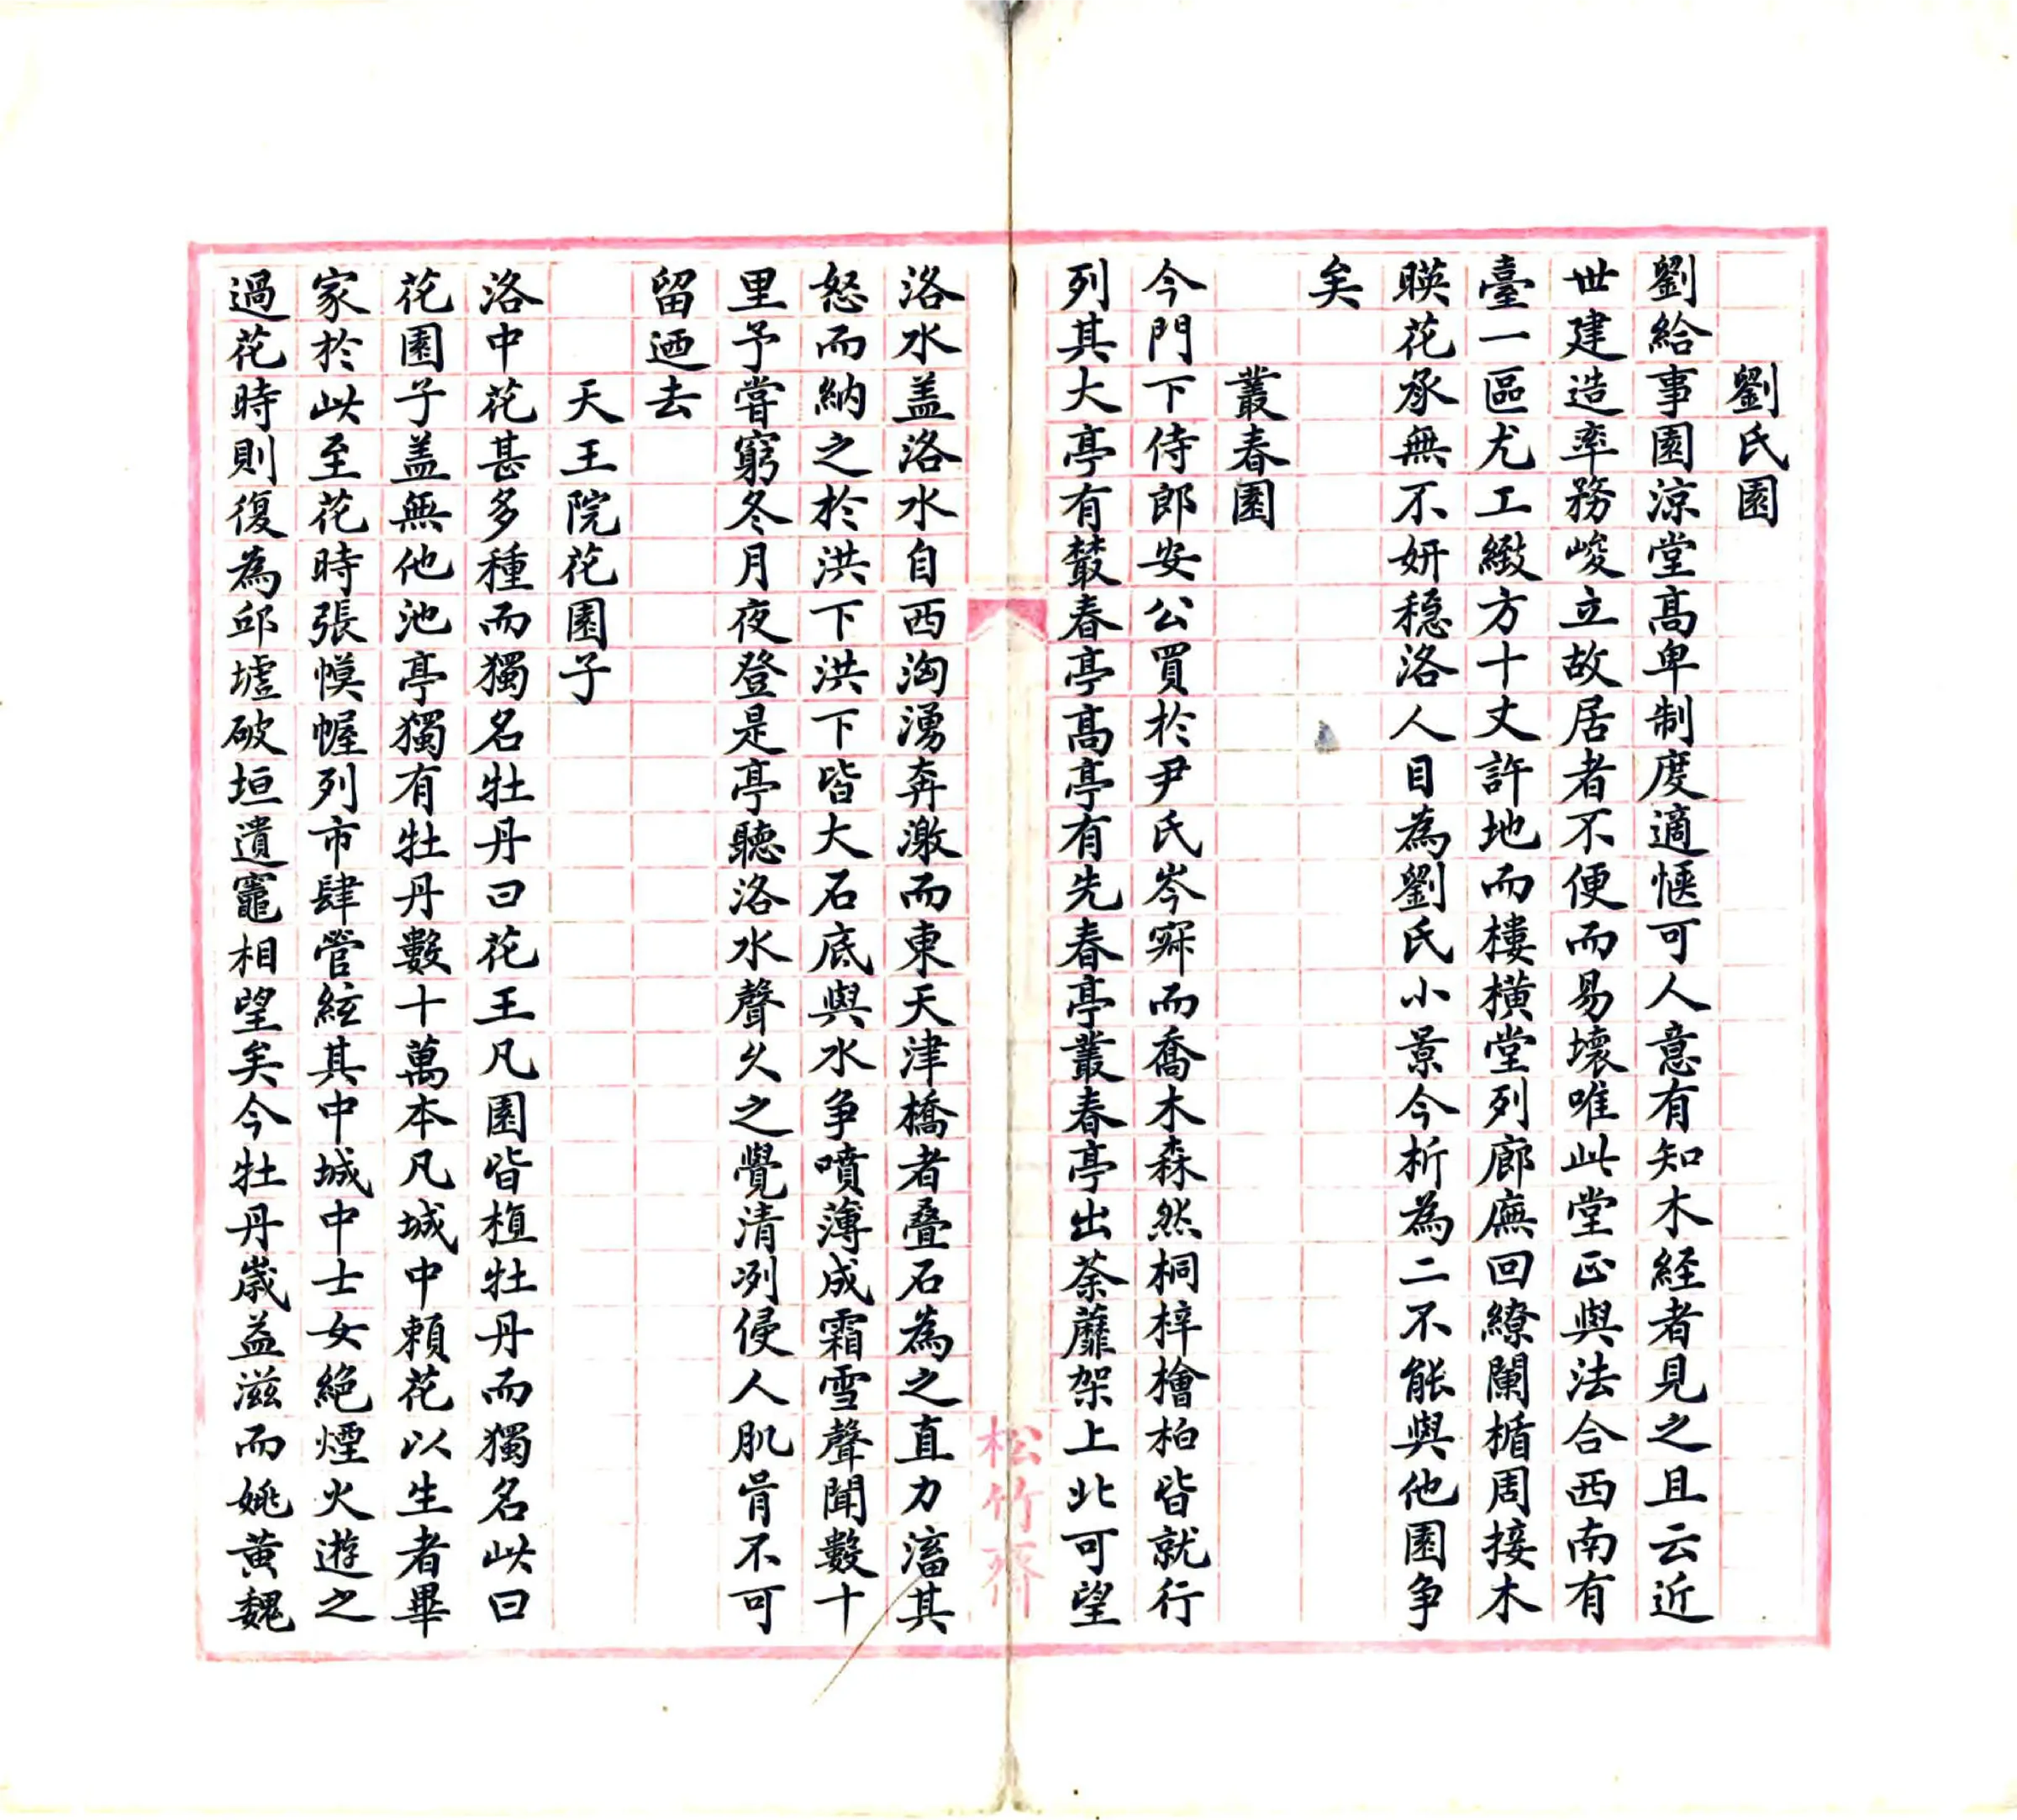 劉氏園
劉給事園涼堂髙卑制度適愜可人意有知木経者見之且云近
世建造率務峻立故居者不便而易壞唯此堂正與法合西南有
臺一區尤工緻方十丈許地而樓橫堂列廊廡回繚闌楯周接木
暎花承無不妍穏洛人目為劉氏小景今析為二不能與他園争
矣
叢春園
今門下侍郎安公買於尹氏岑寂而喬木森然桐梓檜柏皆就行
列其大亭有藂春亭髙亭有先春亭叢春亭出荼蘼架上北可望
洛水盖洛水自西洶湧奔激而東天津橋者叠石為之直力滀其
怒而納之於洪下洪下皆大石底與水争噴薄成霜雪聲聞數十
里予嘗窮冬月夜登是亭聽洛水聲久之覺清冽侵人肌骨不可
留迺去
天王院花園子
洛中花甚多種而獨名牡丹曰花王凡園皆植牡丹而獨名此曰
花園子盖無他池亭獨有牡丹數十萬本凡城中賴花以生者畢
家於此至花時張幙幄列市肆管絃其中城中士女絶煙火遊之
過花時則復為邱墟破垣遺竈相望矣今牡丹嵗益滋而姚黄魏
松竹齋